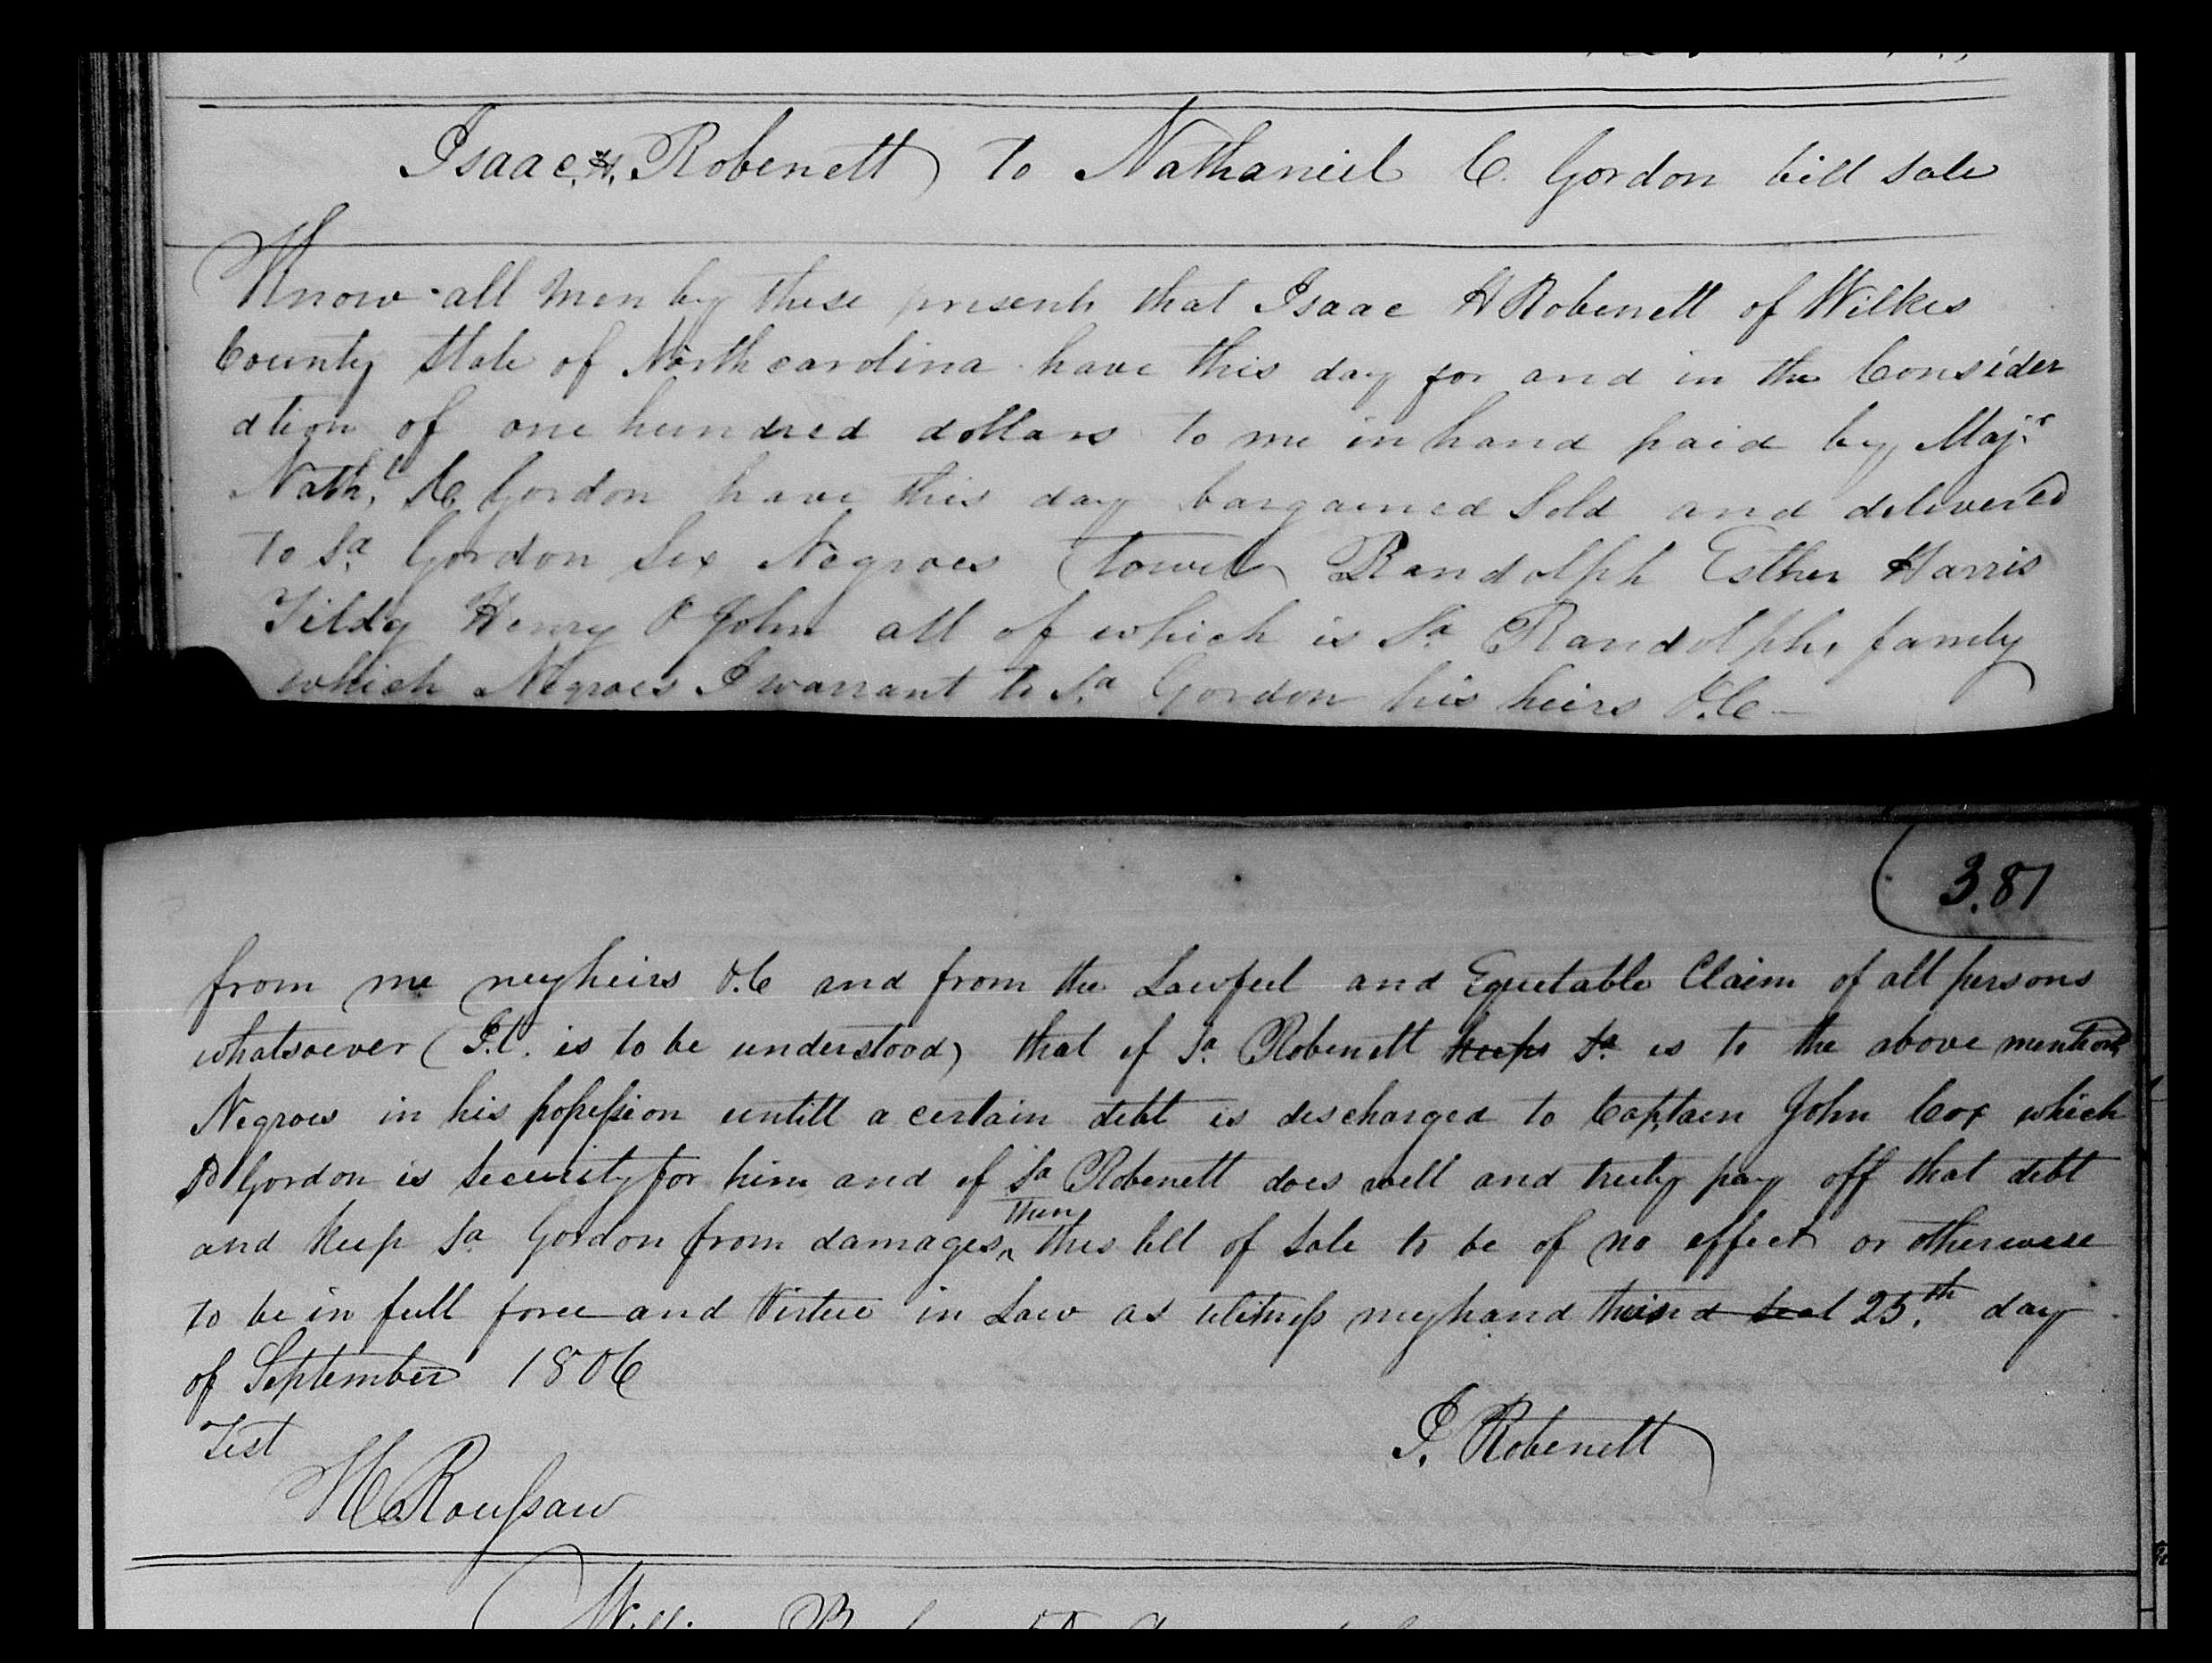 Isaac. H. Robenett to Nathaniel C. Gordon bill Sale
Know all men by these presents that Isaac H Robenett of Wilkes
County State of North carolina have this day for and in the Consider
ation of one hundred dollars to me in hand paid by Majr.
Nathl. C Gordon have this day bargained Sold and delivered
to Sa. Gordon Six Negroes (towit) Randolph Esther Harris
Tildy Henry & John all of which is Sa. Randolphs family
which Negroes I warrant to Sa. Gordon his heirs &.C
3.81
from me my heirs &.C and from the Lawful and Equetable Claim of all persons
whatsoever (I.t. is to be understood) that if Sa. Robenett keeps Sa is to the above mentiond
Negroes in his possession untill a certain debt is descharged to Captain John Cox which
Sd Gordon is Security for him and if Sa Robenett does well and truly pay off that debt
and keep Sa. Gordon from damages then this bill of Sale to be of no effect or otherwise
to be in full force and Virtue in Law as witness my hand this 25.th day
of September 1806
Test
H Roussaw
I. Robenett